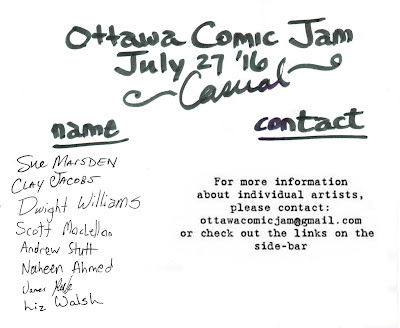 Ottawa Comic Jam
July 27 '16
~Casual~
name
contact
Sue Marsden
Clay Jacobs
Dwight Williams
Scott Maclellan
Andrew Stutt
Naheen Ahmed
James
Liz Walsh
For more information
about individual artists,
please contact:
ottawacomicjam@gmail.com
or check out the links on the
side-bar